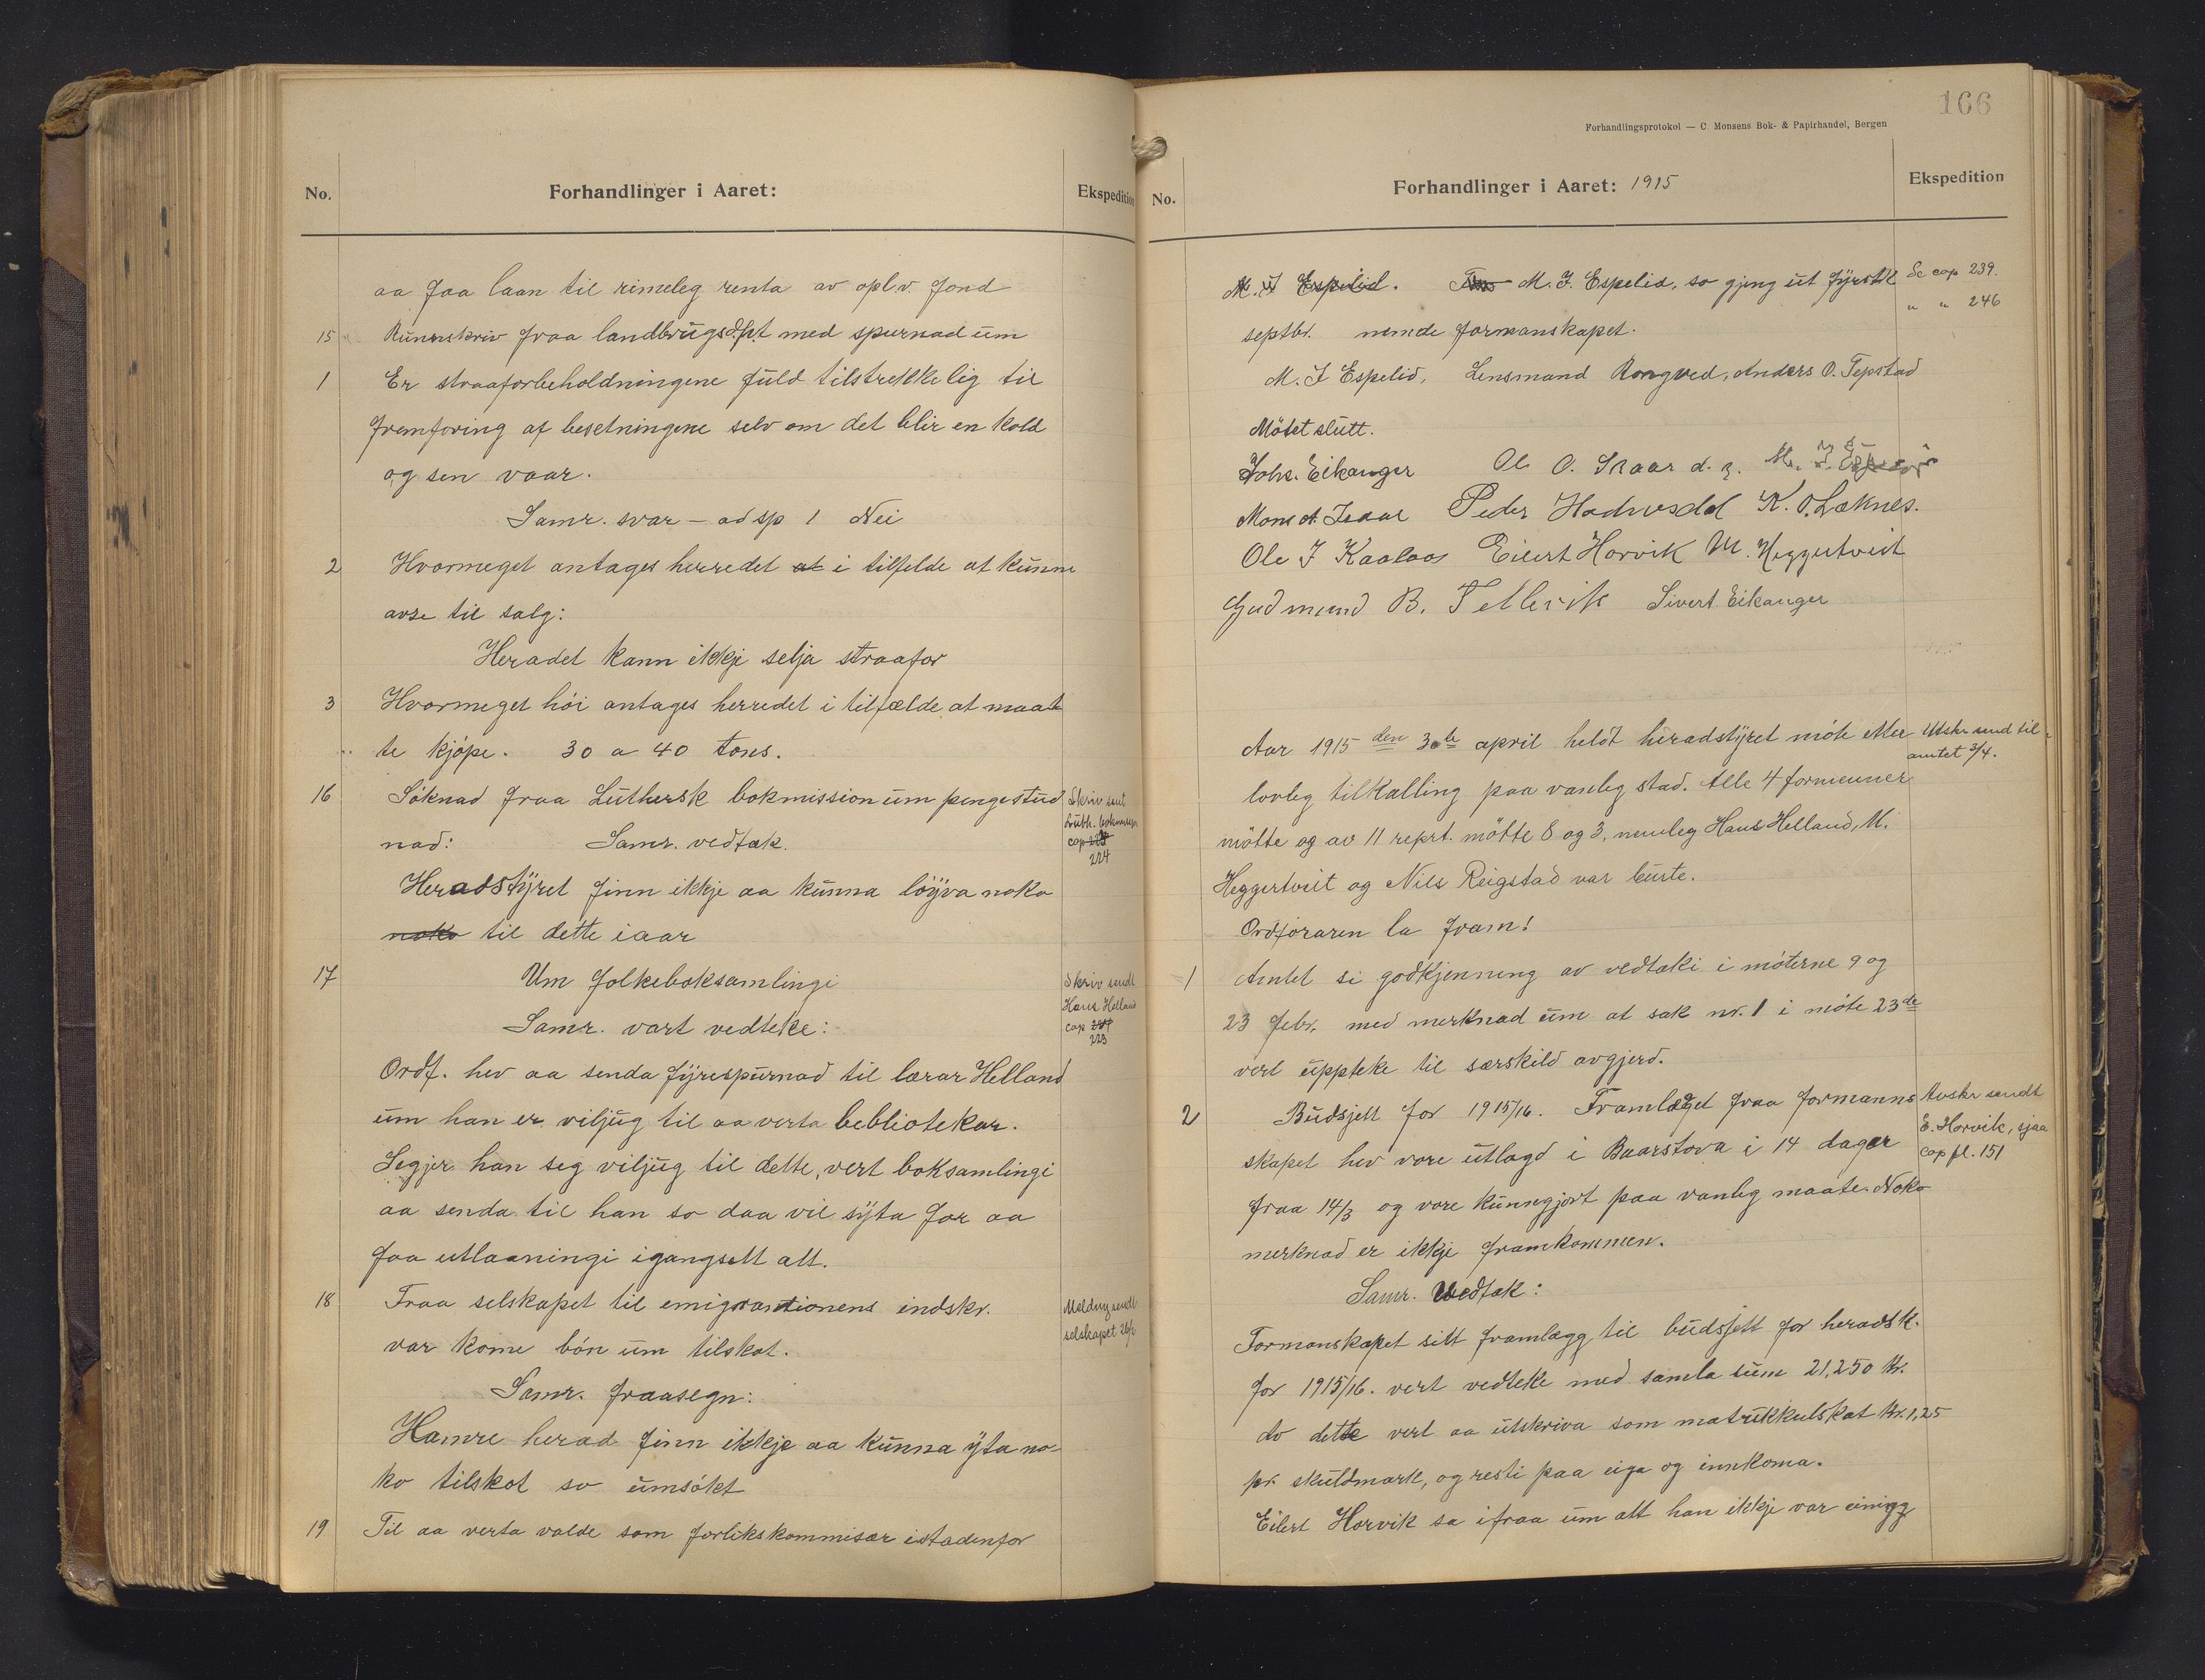 No.
Forhandlinger i Aaret:
Ekspedition
aa faa laan til rimeleg renta av oplv. fond
15 Runnskriv fraa landbrugsdpt med spurnad um
1 Er straaforbeholdningene fuld tilstrekkelig til
fremforing af besetningene selv om det blir en kold
og sen vaar.
Samr. svar – ad sp 1 Nei
2 Hvormeget antages herredet at i tilfelde at kunne
avse til salg:
Heradet kann ikkje selja straafor
3 Hvormeget höi antages herredet i tilfælde at maat
te kjöpe. 30 a 40 tons.
16 Söknad fraa Luthersk bokmission um pengestud
nad: Samr. vedtak.
Skriv sent
Luth.
cap
224
Heradstyret finn ikkje aa kunna löyva noko
noko til dette iaar
17 Um folkeboksamlingi
Samr. vart vedteke:
Skriv sendt
Hans Helland
cap
223
Ordf. hev aa senda fyrespurnad til lærar Helland
um han er viljug til aa verta bebliotekar.
Segjer han seg viljug til dette, vert boksamlingi
aa senda til han so daa vil syta for aa
faa utlaaningi igangsett att.
18 Fraa selskapet til emigrantionens indskr.
var kome bön um tilskot.
Melding sendt
selskapet
Samr. fraasegn:
Hamre herad finn ikkje aa kunna yta no-
ko tilskot so umsökt
19 Til aa verta valde som forlikskommisær istadenfor
166
Forhandlingsprotokol — C. Monsens Bok- & Papirhandel, Bergen
No.
Forhandlinger i Aaret: 1915
Ekspedition
M. J Espelid. M. J. Espelid, so gjeng ut fyrst i
Se cap 239.
" " 246
septbr. nemde formanskapet.
M. J Espelid, Lensmand Rongved, Anders O. Tepstad
Mötet slutt.
Johs. Eikanger Ole O. Skaar d. y. M. J. Espelid
Mons A. Isdal Peder Hadnesdal K. O. Læknes.
Ole J Kaalaas Eilert Horvik M. Heggertveit
Gudmund B. Tellevik Sivert Eikanger
Aar 1915 den 30te april heldt heradstyret möte etter
Utskr send til
amtet 3/4.
lovleg tilkalling paa vanleg stad. Alle 4 formenner
mötte og av 11 reprt. mötte 8 og 3, nemleg Hans Helland, M.
Heggertveit og Nils Reigstad var burte.
Ordföraren la fram!
1 Amtet si godkjenning av vedtaki i möterne 9 og
23 febr, med merknad um at sak nr. 1 i möte 23de
vert uppteke til særskild avgjerd.
2 Budsjett for 1915/16. Framlægget fraa formanns
Avskr sendt
E. Horvik, sjaa
cap fl. 151
skapet hev vore utlagd i Baarstova i 14 dager
fraa 14/3 og vore kunngjort paa vanleg maate. Noko
merknad er ikkje framkommen.
Samr. Vedtak:
Formanskapet sitt framlægg til budsjett for heradsk.
for 1915/16. vert vedteke med samla sum 21,250 kr.
Av dette vert aa utskriva som matrikkulskat kr. 1,25
pr. skuldmark, og resti paa eiga og innkoma.
Eilert Horvik sa ifraa um att han ikkje var einigg